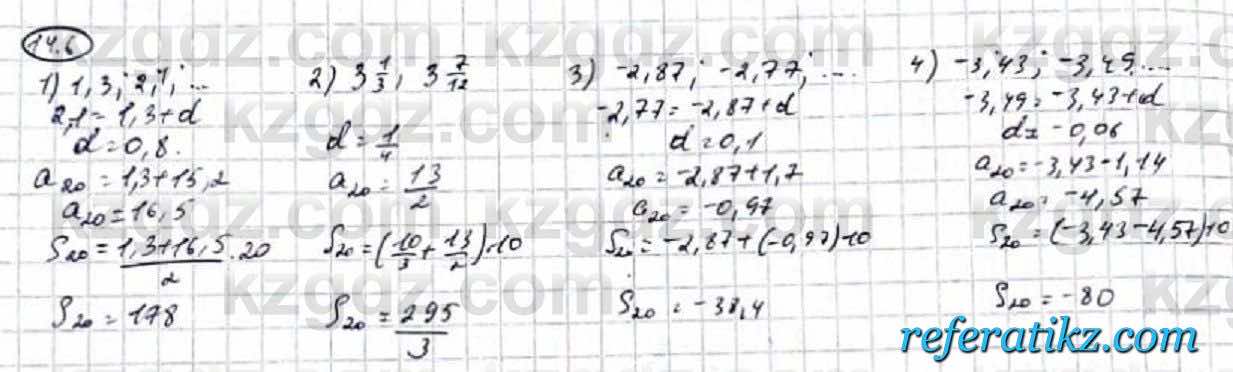 14.6
1) 1,3; 2,1; ...
2,1 = 1,3+d
d = 0,8.
a₂₀ = 1,3+15,2
a₂₀ = 16,5
S₂₀ = (1,3+16,5)/2 · 20
S₂₀ = 178
2) 3 1/3, 3 7/12
d = 1/4
a₂₀ = 13/2
S₂₀ = (10/3 + 13/2)·10
S₂₀ = 295/3
3) -2,87; -2,77; ...
-2,77 = -2,87+d
d = 0,1
a₂₀ = -2,87+1,7
a₂₀ = -0,97
S₂₀ = -2,87+(-0,97)·10
S₂₀ = -38,4
4) -3,43; -3,49....
-3,49 = -3,43+d
d = -0,06
a₂₀ = -3,43-1,14
a₂₀ = -4,57
S₂₀ = (-3,43-4,57)·10
S₂₀ = -80
kzgdz.com
referatikz.com